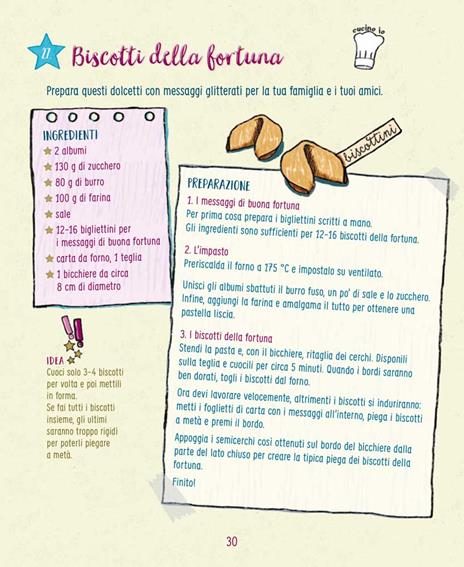 cucino io
22.
Biscotti della fortuna
Prepara questi dolcetti con messaggi glitterati per la tua famiglia e i tuoi amici.
INGREDIENTI
2 albumi
130 g di zucchero
80 g di burro
100 g di farina
sale
12-16 bigliettini per
i messaggi di buona fortuna
carta da forno, 1 teglia
1 bicchiere da circa
8 cm di diametro
biscottini
PREPARAZIONE
1. I messaggi di buona fortuna
Per prima cosa prepara i bigliettini scritti a mano.
Gli ingredienti sono sufficienti per 12-16 biscotti della fortuna.
2. L'impasto
Preriscalda il forno a 175 °C e impostalo su ventilato.
Unisci gli albumi sbattuti il burro fuso, un po' di sale e lo zucchero.
Infine, aggiungi la farina e amalgama il tutto per ottenere una
pastella liscia.
3. I biscotti della fortuna
Stendi la pasta e, con il bicchiere, ritaglia dei cerchi. Disponili
sulla teglia e cuocili per circa 5 minuti. Quando i bordi saranno
ben dorati, togli i biscotti dal forno.
Ora devi lavorare velocemente, altrimenti i biscotti si induriranno:
metti i foglietti di carta con i messaggi all'interno, piega i biscotti
a metà e premi il bordo.
Appoggia i semicerchi così ottenuti sul bordo del bicchiere dalla
parte del lato chiuso per creare la tipica piega dei biscotti della
fortuna.
Finito!
IDEA
Cuoci solo 3-4 biscotti
per volta e poi mettili
in forma.
Se fai tutti i biscotti
insieme, gli ultimi
saranno troppo rigidi
per poterli piegare
a metà.
30